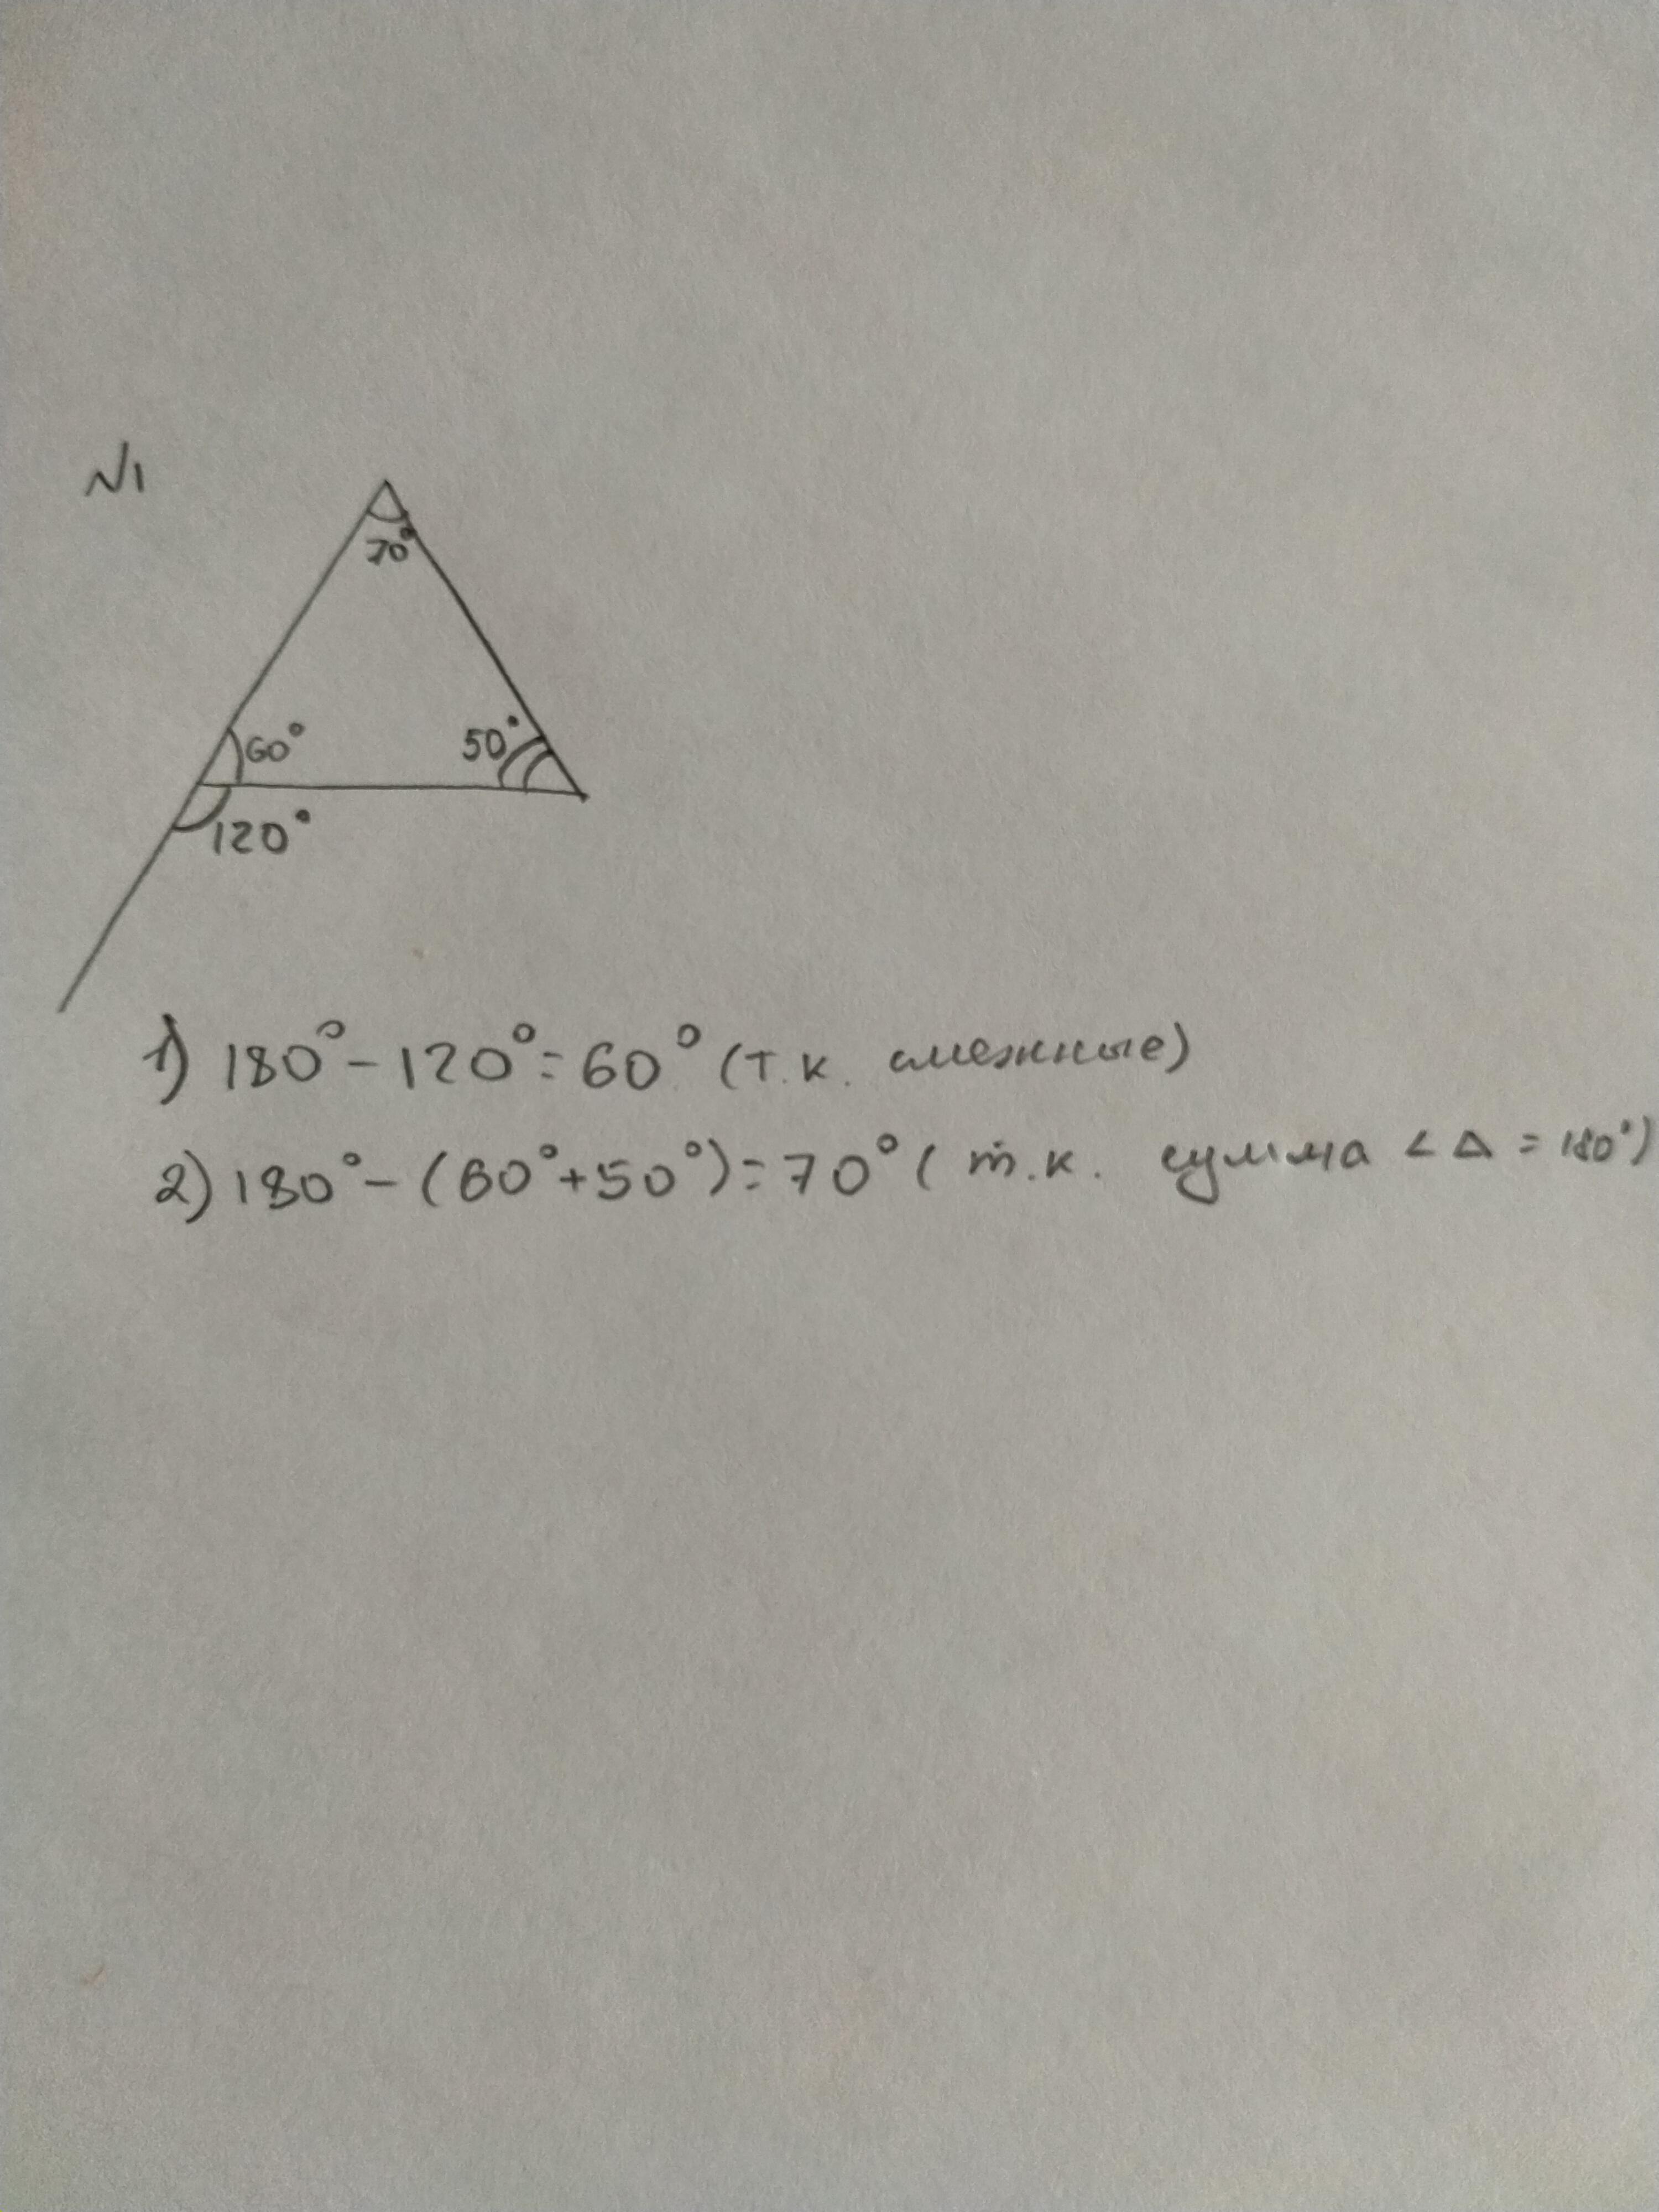 №1
70°
60°
50°
120°
1) 180° - 120° = 60° (т.к. смежные)
2) 180° - (60° + 50°) = 70° (т.к. сумма ∠ Δ = 180°)